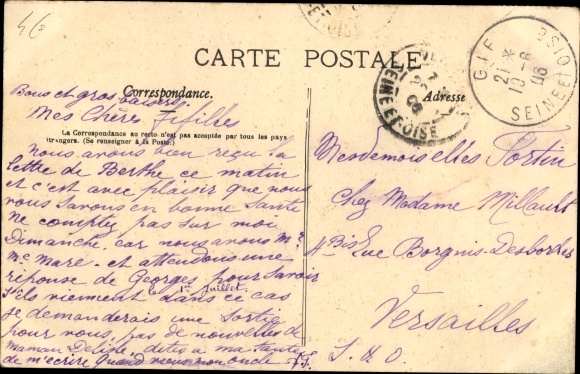 4/6
CARTE POSTALE
Correspondance.
Adresse
Bons et gros baisers
Mes Chères Fifilles
La Correspondance au recto n'est pas acceptée par tous les pays
étrangers. (Se renseigner à la Poste.)
nous avons bien reçu la
lettre de Berthe ce matin
et c'est avec plaisir que nous
vous savons en bonne santé
ne comptez pas sur moi
Dimanche car nous avons Mr
Me Mare et attendons une
réponse de Georges pour savoir
1er Juillet
s'ils viennent dans ce cas
je demanderais une sortie
pour vous, pas de nouvelles de
maman Delisle, dites a ma tante
de m'écrire
oncle
Mesdemoiselles Fortin
Chez Madame Millault
4 Bis Rue Borgnis-Desbordes
Versailles
S. & O.
GIF
21 *
SEINE ET OISE
SEINE ET OISE
OISE